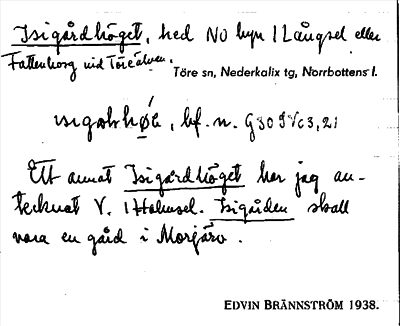 Isigårdhöget, hed NO byn i Långsel eller
Fattenborg vid Töreälven.
Töre sn, Nederkalix tg, Norrbottens l.
bf. n. G 30
Ett annat Isigårdhöget har jag an-
tecknat V. i Holmsel. Isigården skall
vara en gård i Morjärv.
EDVIN BRÄNNSTRÖM 1938.